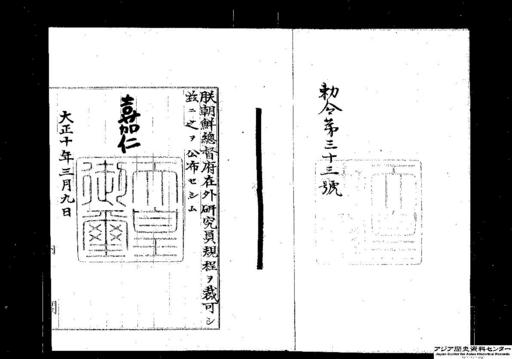 勅令第三十三號
朕朝鮮總督府在外研究員規程ヲ裁可シ
玆ニ之ヲ公布セシム
嘉仁
天皇御璽
大正十年三月九日
アジア歴史資料センター
Japan Center for Asian Historical Records